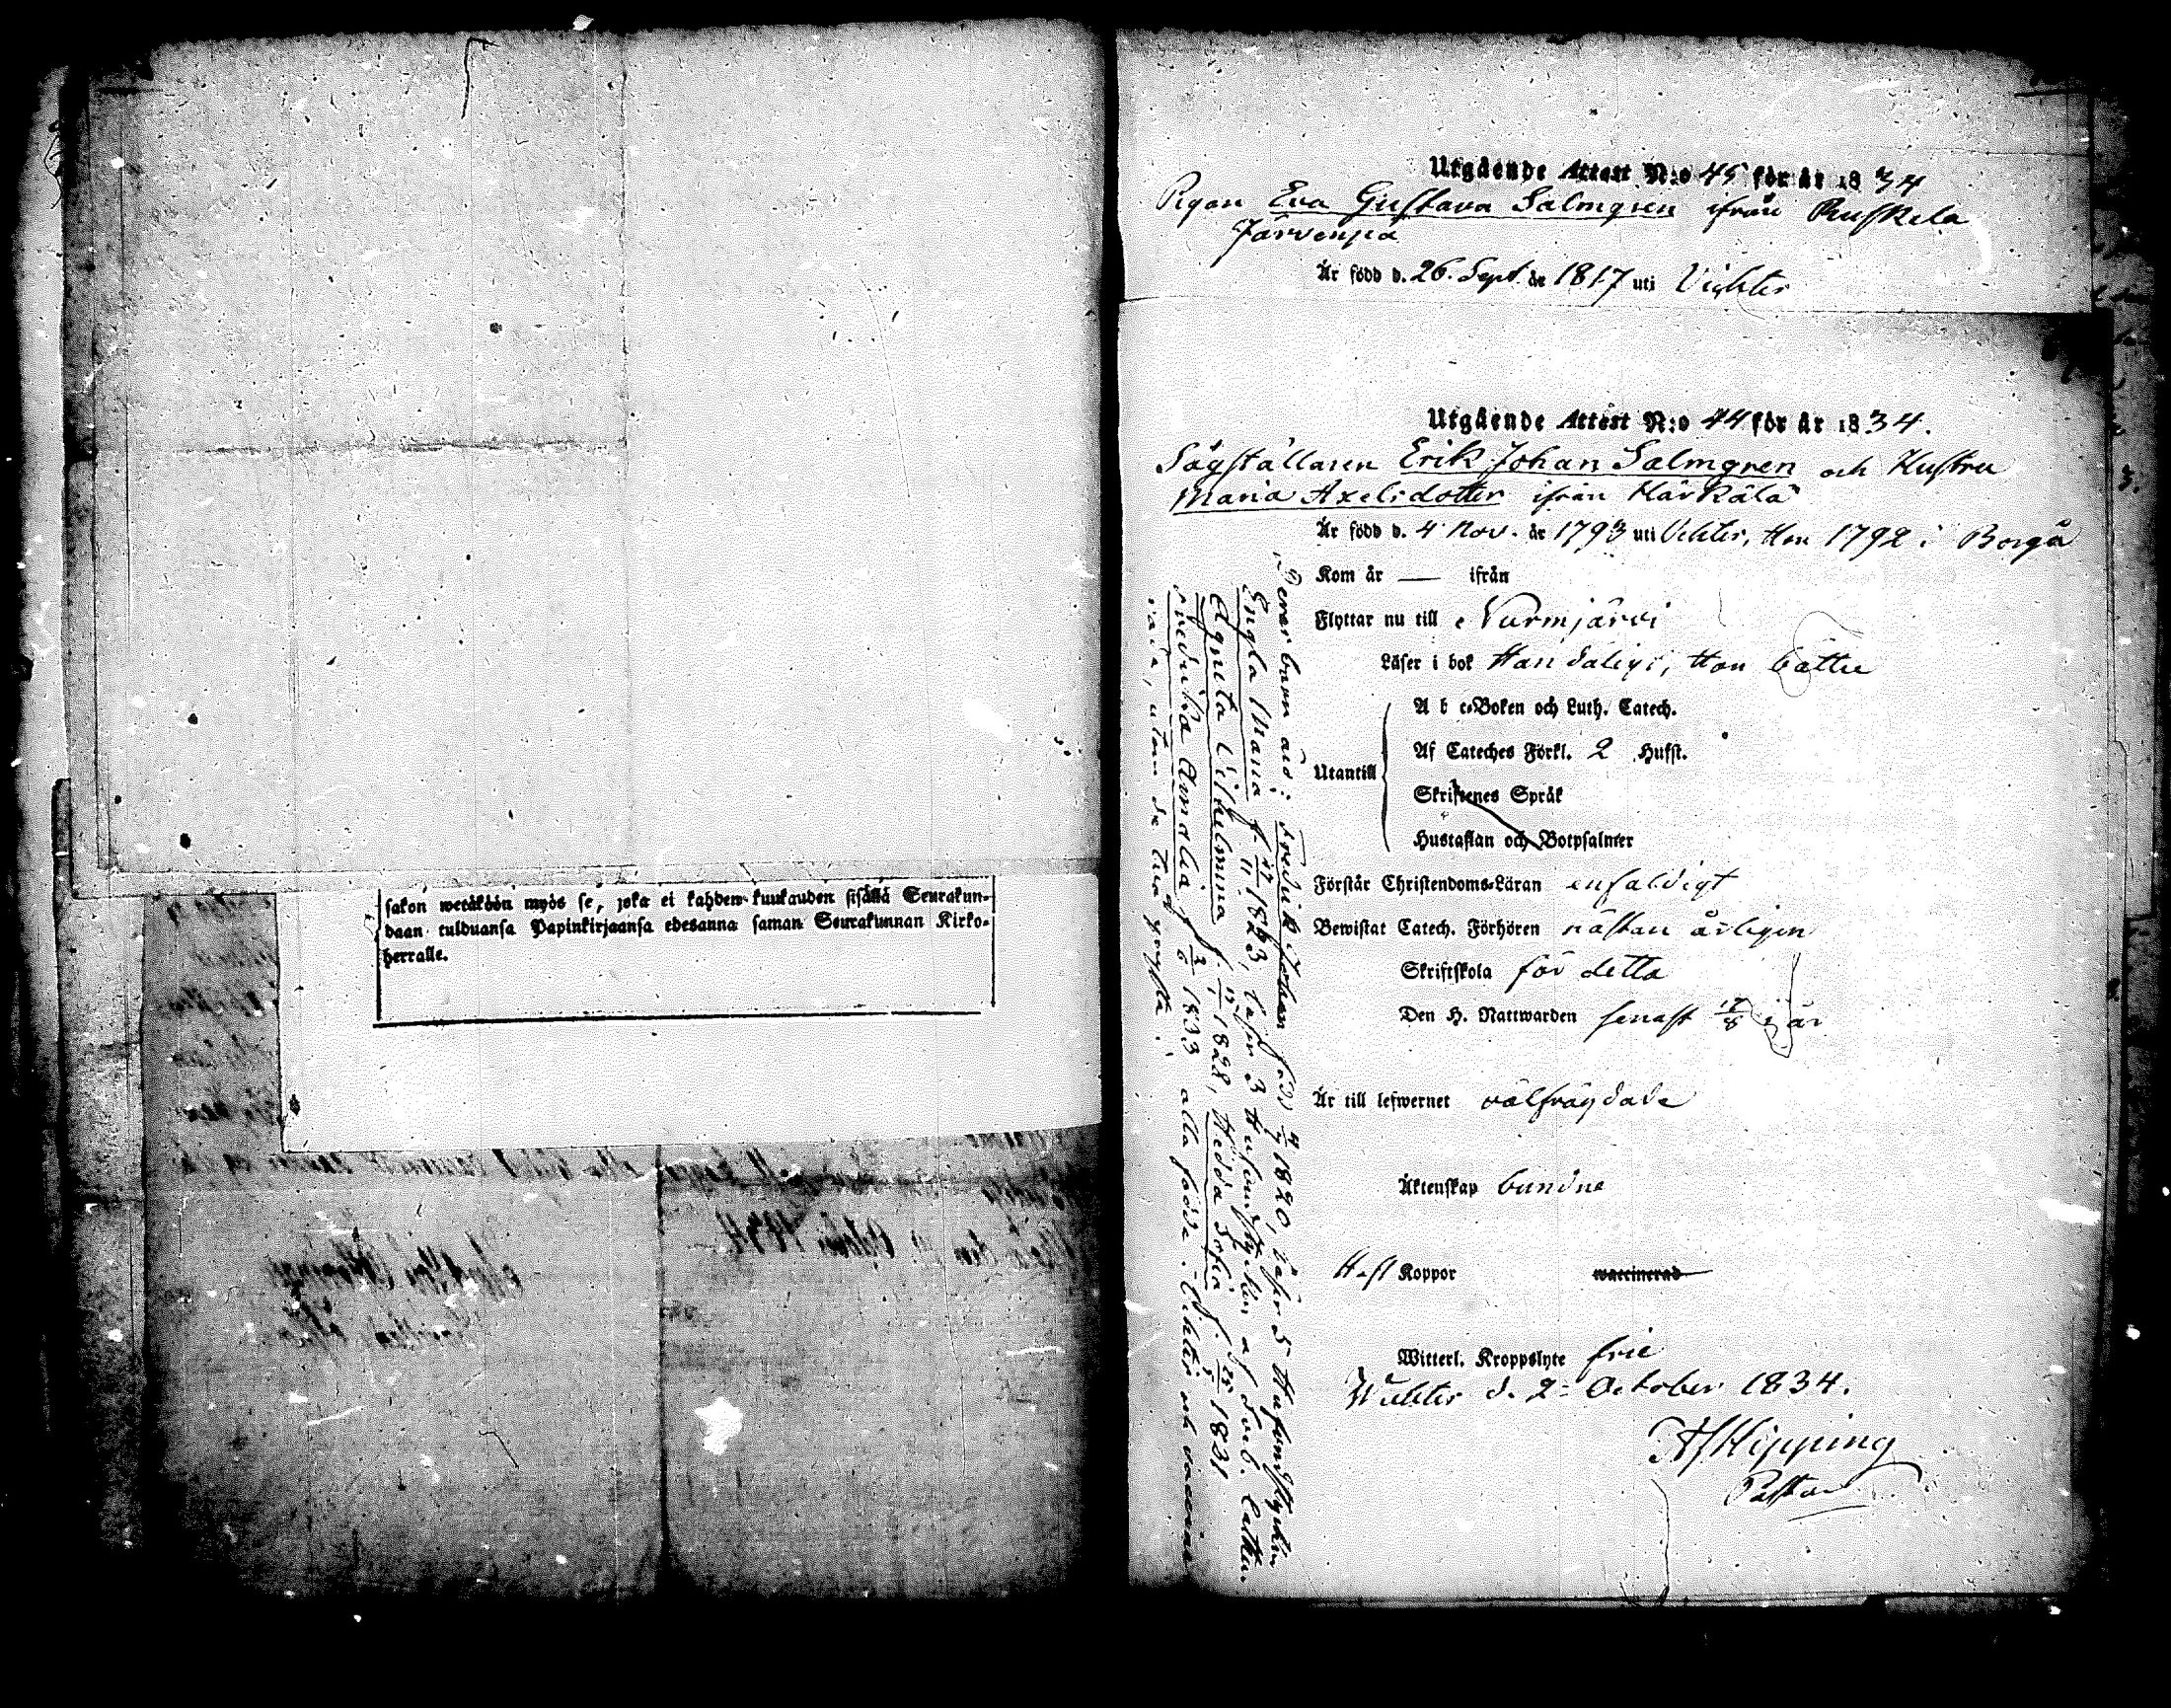 sakon wetäköön myös se, joka ei kahden kuukauden sisällä Seurakun-
daan tulduansa Papinkirjaansa edesanna saman Seurakunnan Kirko-
herralle.
Utgående Attest N:o 45 för år 1834
Pigan Eva Gustava Salmgren ifrån Ruskela
Järvenpä
Är född d. 26. Sept. år 1817 uti Vichtis
Utgående Attest N:o 44 för år 1834.
Sågställaren Erik Johan Salmgren och Hustru
Maria Axelsdotter ifrån Härkälä
Är född d. 4 Nov. år 1793 uti Vichtis, Hon 1792 i Borgå
Kom år — ifrån
Flyttar nu till Nurmjärvi
Läser i bok Han dåligt, Hon bättre
Utantill
A b c-Boken och Luth. Catech.
Af Cateches Förkl. 2 Hufst.
Skriftenes Språk
Hustaflan och Botpsalmer
Förstår Christendoms-Läran enfaldigt
Bewistat Catech. Förhören nästan årligen
Skriftskola för detta
Den H. Nattwarden senast 17/8 i år
Är till lefwernet välfrägdade
Äktenskap bundne
Haft Koppor waccinerad
Witterl. Kroppslyte frie
Wichtis d. 2 October 1834.
AJHipping
Pastor
Deras barn äro: Fredrik Johan född 4/7 1820, läser 5 Hufvudstycken
Engla Maria f. 17/11 1823, läser 3 Hufvudstycken af Sveb. Catkes.
Agneta Vilhelmina f. 1828, Hedda Sofia f. 1831
Fredrika Amalia f. 3/6 1833 alla födde i Vichtis och vaccine
rade, utom de två yngsta.